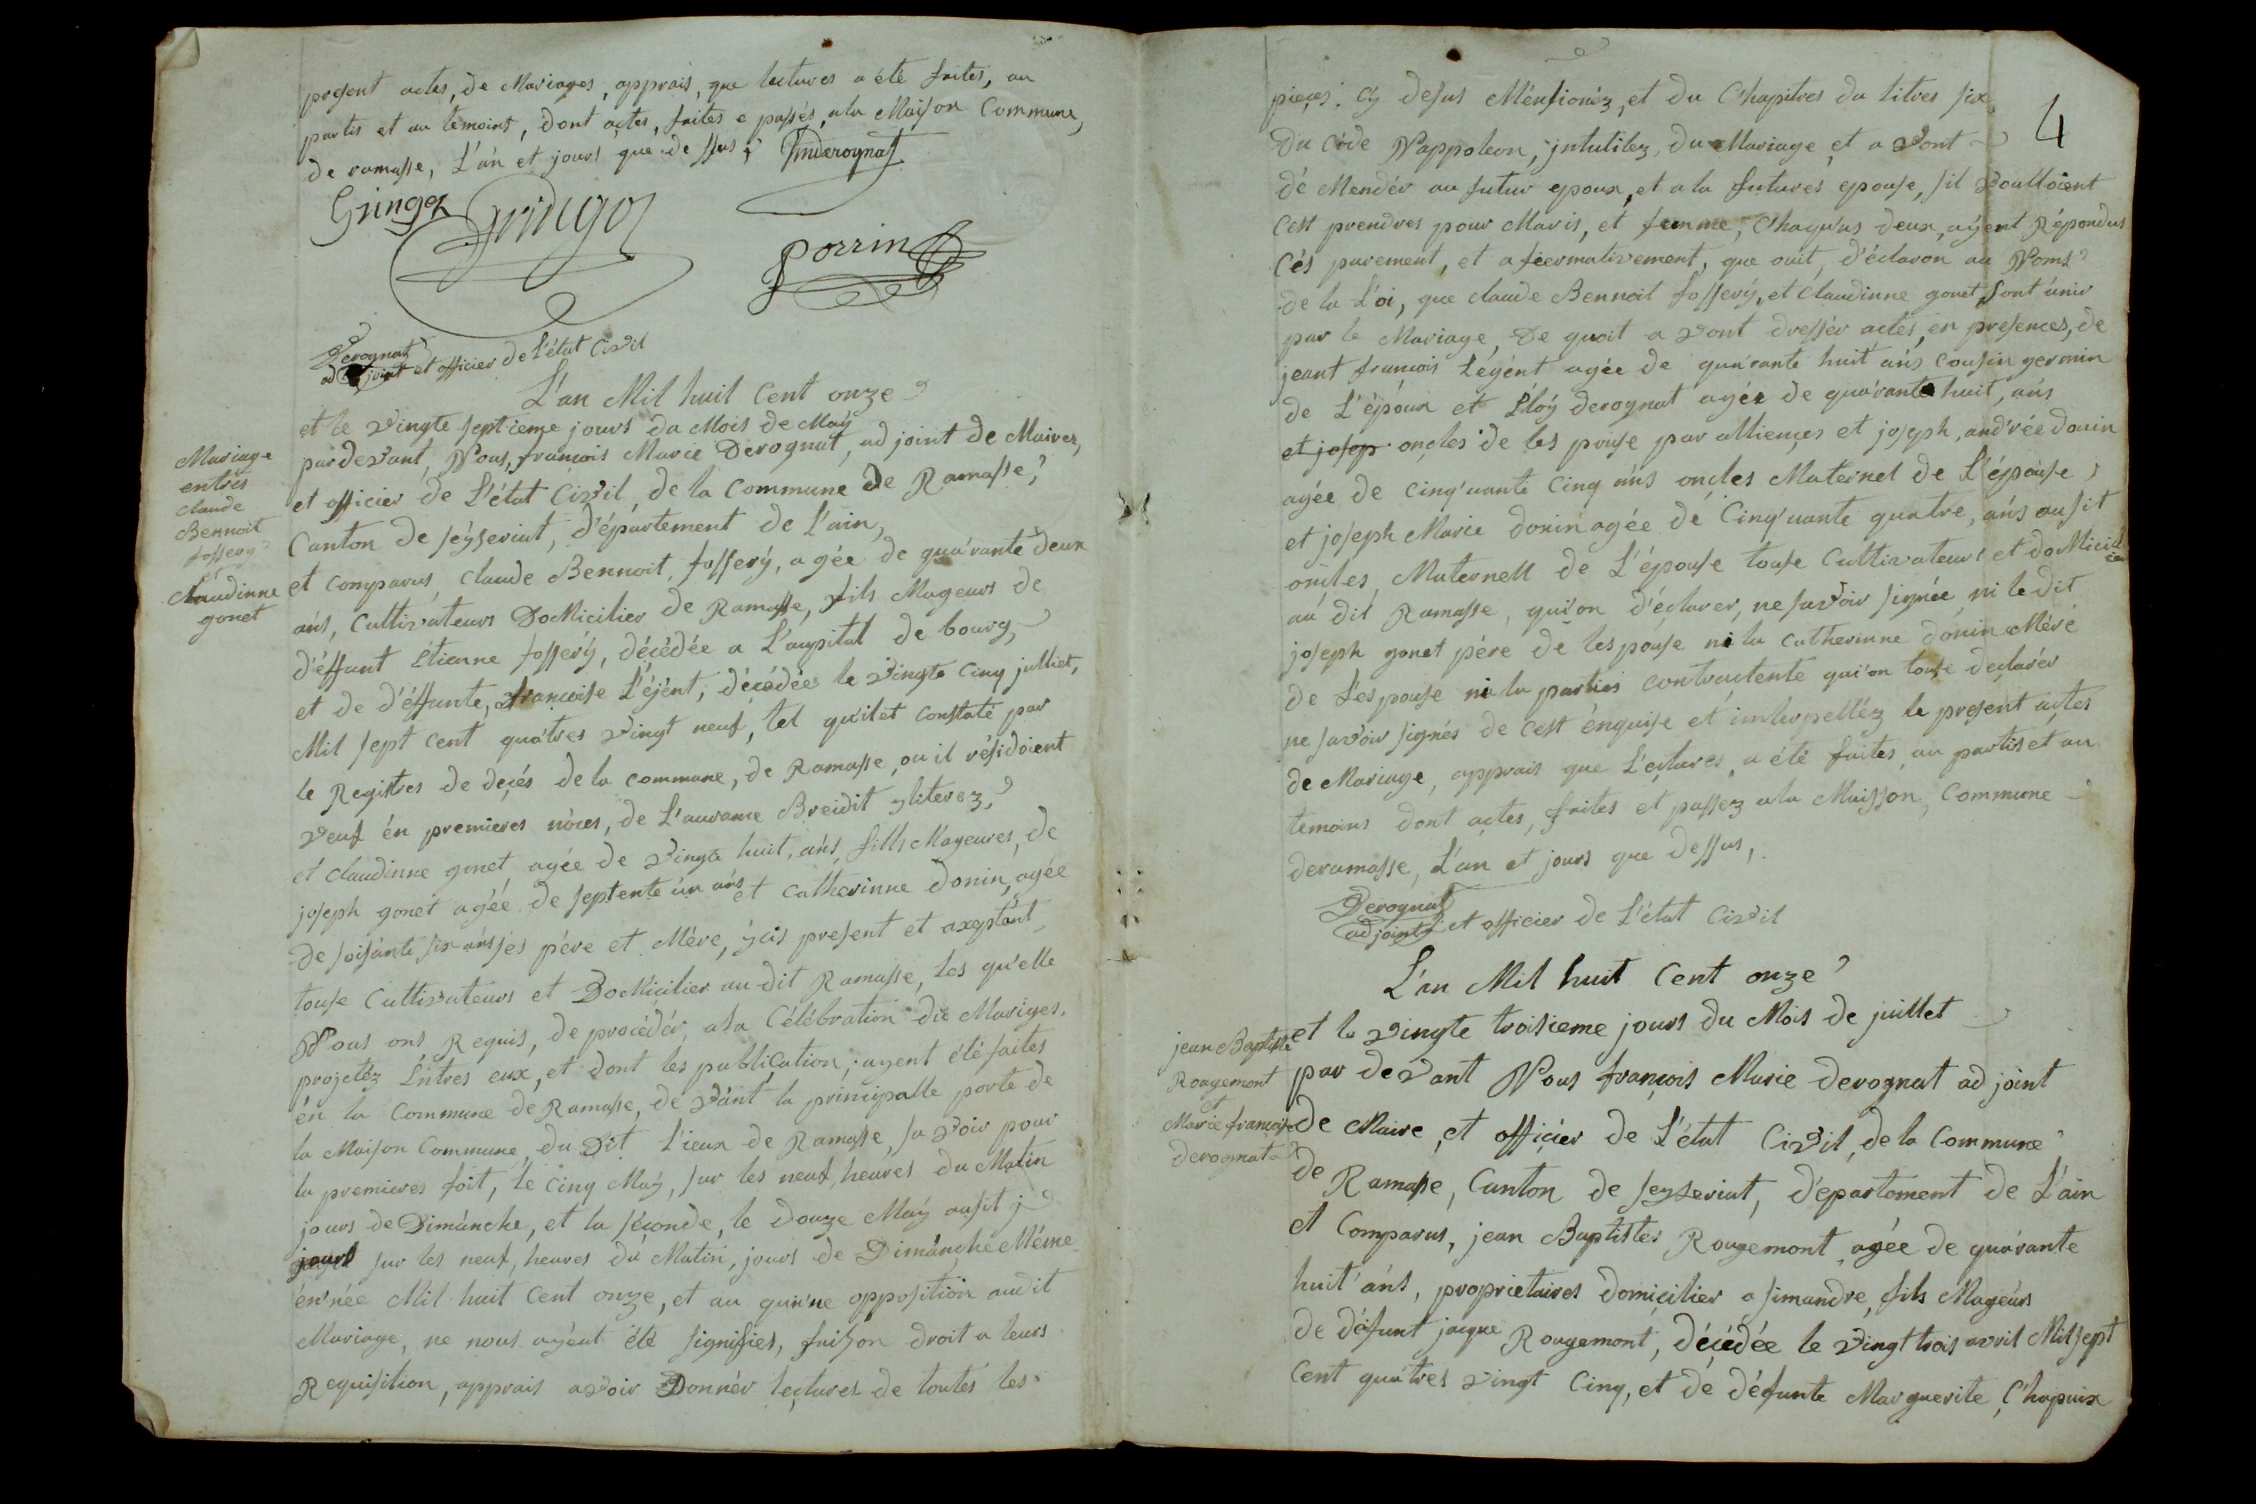 present actes, de Mariages, apprais, que lectures a été faites, au
partis et au temoins, dont actes, faites e passés, a la Maison Commune,
de ramasse, L'an et jours que de ssus;
Gringoz Gringoz
Porrin
Derognat
adjoint et officier de L'état Civil
L'an Mil huit Cent onze
et le vingte septieme jours du Mois de May
Mariage
entres
claude
Bennoit
fossery
et
Claudinne
gonet
pardevant, Nous, francois Marie Derognat, adjoint de Maires,
et officier de L'état Civil, de la Commune de Ramasse,
Canton de seyseriat, d'épartement de L'ain,
et comparus, Claude Bennoit, fossery, agée de qua'rante deux
ans, Cultivateurs Domicilier de Ramasse, fils Mageurs de
d'éffunt Etienne fossery, décédée a L'aupital de bourg,
et de d'éffunte, francoise L'éjént, décédée le vingte Cinq julliet,
Mil sept cent qua'tres vingt neuf, tel qu'ilet constaté par
le Registres de decés de la commune, de Ramasse, ou il résidoient
veuf én premieres nóces, de L'aurance Breidit
et Claudinne gonet, agée de vingte huit, ans, fills Mageures, de
joseph gonet agée de septente ún ans et catherinne donin, agée
de soisánte six ans ses pére et Mére, ycis present et axeptant
touse Cultivateurs et Domicilier au dit Ramasse, les qu'elle
Nous ons Requis, de procédér, a la Célébration du Mariges,
projetéz Entres eux, et dont les publication; ayent été faites
én la Commune de Ramasse, de vánt la principalle porte de
la Maison Commune, du Dit Lieux de Ramasse, sa voir pour
la premieres foit, le Cinq May, sur les neuf, heures du Matin
jours de Dimánche, et la séconde, le douze May ausit j
jours sur les neuf, heures du Matin, jours de Dimánche Méme
én'née Mil huit Cent onze, et au qun'ne opposition audit
Mariage, ne nous ayént été signifies, faison droit a leurs
Requisition, apprais avoir Donnér lectures de toutes les
4
pieces. Cy desus Ménsionéz, et du Chapitres du titres six,
Du Code Nappoleon, jntulilez, du Mariage et a vont
dé Mendér au futur epoux, et a la futures epouse, sil voulloient
Cest prendres pour Maris, et femme, Chaqu'us deux, ayént Répondus
Cés parement, et a féermativement, que ouit, d'éclaron au Noms
de la L'oi, que claude Bennoit fossery, et Claudinne gonet, sont únir
par le Mariage, De quoit a vont dressér actes, en presences, de
jeant francois Légént agée de qua'rante huit ans cousin germin
de L'époux et Eloy derognat agée de qua'rante huit, ans
et josep oncles de les pouse par alliences et joseph, and'rée donin
agée de cinq'uante Cinq ans oncles Maternel de L'épouse
et joseph Marie donin agée de Cinq'uante quatre, ans ausit
oncles, Maternell de L'épouse touse Cultivateurs et doMicil
au dit Ramasse, qui'on d'éclarer, ne savoir signée ni le dit
joseph gonet pére de lespouse ni la catherinne donin Mére
de L'espouse ni la parties contractente qui'on touse declarér
ne savoir signés de cest énquise et interpelléz le present actes
de Mariage, apprais que L'ectures, a été faites, au partis et au
temoins dont actes, faites et passez a la Maisson, Commune
deramasse, L'an et jours que dessus,
Derognat
adjoint et officier de L'état Civil
L'an Mil huit Cent onze
et le vingte troisieme jours du Mois de juillet
jean Baptiste
Rougemont
et
Marie francoise
derognat
par devant Nous francois Marie derognat adjoint
de Maire, et officier de L'état Civil, de la Commune
de Ramasse, Canton de seyseriat, d'epartoment de L'ain
et Comparus, jean Baptistes Rougemont, agée de qua'rante
huit ans, proprietaires domicilier a simandre, fils Mageurs
de défunt jacque Rougemont, décédée le vingt trois avril Mil sept
Cent qua'tres vingt Cinq, et de défunte Marguerite, C'hapuix